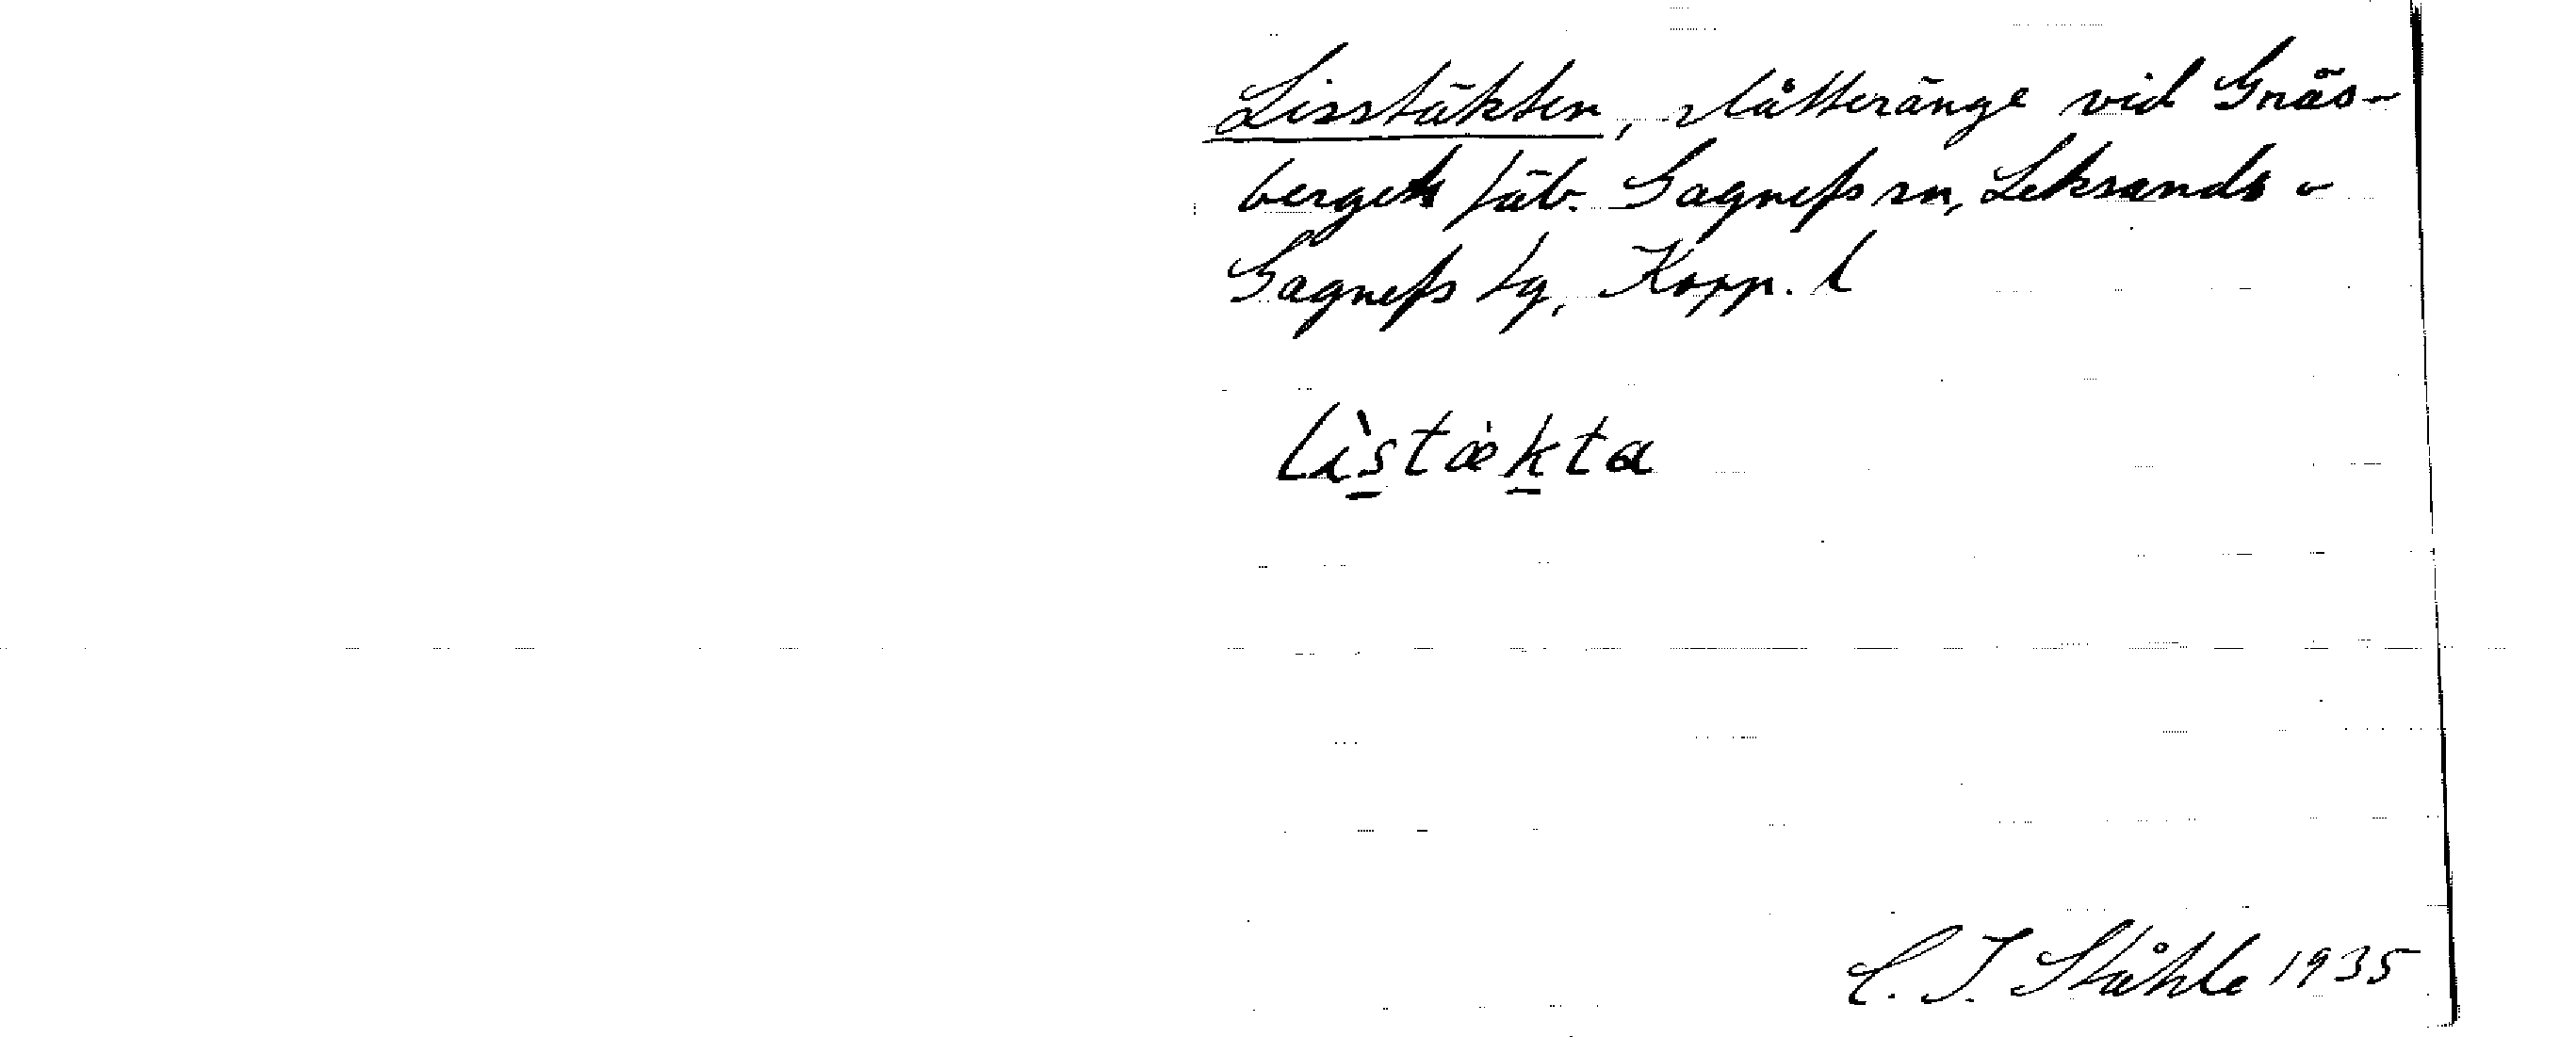 Lisstäkten, slåtteränge vid Gräs-
bergets fäb. Gagnefs sn, Leksands o
Gagnefs tg, Kopp. l
lìstækta
C. I. Ståhle 1935